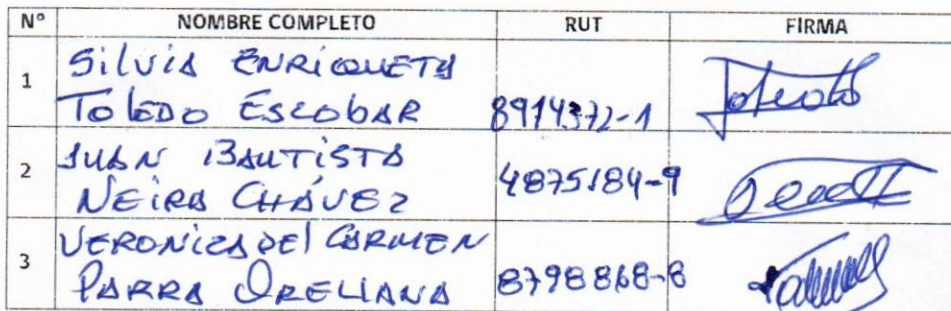 N° NOMBRE COMPLETO RUT FIRMA
1 Silvia ENRIQUETA
TOLEDO ESCOBAR 8914372-1
2 JUAN BAUTISTA
NEIRA CHÁVEZ 4875184-9
3 VERONICA DEL CARMEN
PARRA ORELLANA 8798868-8